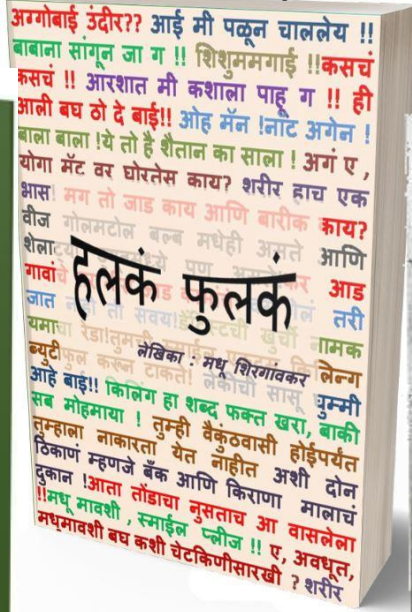 अग्गोबाई उंदीर?? आई मी पळून चाललेय !!
बाबाना सांगून जा ग !! शिशुममगाई !!कसचं
कसचं !! आरशात मी कशाला पाहू ग !! ही
आली बघ ठो दे बाई!! ओह मॅन !नाट अगेन !
बाला बाला !ये तो है शैतान का साला ! अगं ए ,
योगा मॅट वर घोरतेस काय? शरीर हाच एक
भास! मग तो जाड काय आणि बारीक काय?
वीज गोलमटोल बल्ब मधेही असते आणि
शेलाट्या
गावांचे आड
जात नाही तो सवय! तरी
हलकं फुलकं
यमाचा रेडा!तुमची नामक
लेखिका : मधू शिरगांवकर
ब्युटीफुल करून टाकते! लेकीची सासू घुम्मी
आहे बाई!! किलिंग हा शब्द फक्त खरा, बाकी
सब मोहमाया ! तुम्ही वैकुंठवासी होईपर्यंत
तुम्हाला नाकारता येत नाहीत अशी दोन
ठिकाणं म्हणजे बॅंक आणि किराणा मालाचं
दुकान !आता तोंडाचा नुसताच आ वासलेला
!!मधू मावशी , स्माईल प्लीज !! ए, अवधूत,
मधूमावशी बघ कशी चेटकिणीसारखी ? शरीर